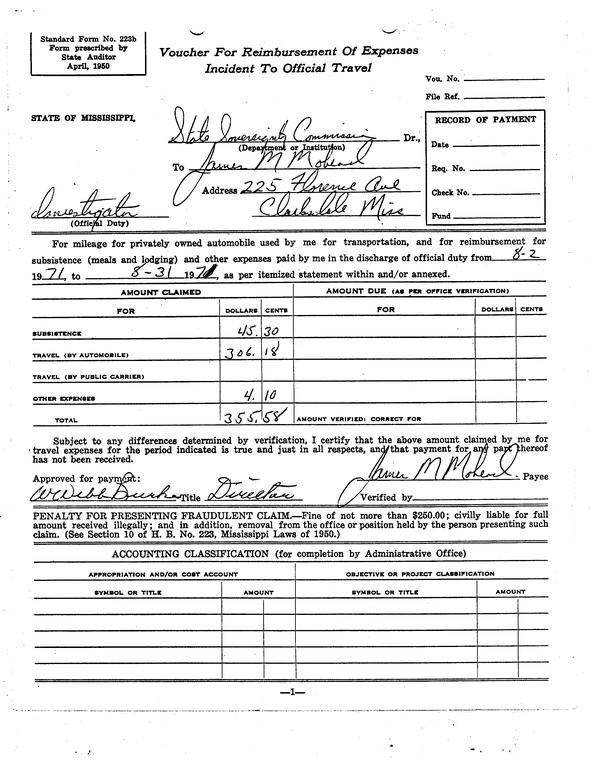 Standard Form No. 223b
Form prescribed by
State Auditor
April, 1950
Voucher For Reimbursement Of Expenses
Incident To Official Travel
Vou. No.
File Ref.
STATE OF MISSISSIPPI,
State Sovereignty Commission Dr.,
(Department or Institution)
To James M Mohead
Address 225 Florence Ave
Clarksdale Miss
Investigator
(Official Duty)
RECORD OF PAYMENT
Date
Req. No.
Check No.
Fund
For mileage for privately owned automobile used by me for transportation, and for reimbursement for
subsistence (meals and lodging) and other expenses paid by me in the discharge of official duty from 8-2
1971, to 8-31 1971, as per itemized statement within and/or annexed.
AMOUNT CLAIMED AMOUNT DUE (AS PER OFFICE VERIFICATION)
FOR DOLLARS CENTS FOR DOLLARS CENTS
SUBSISTENCE 45. 30
TRAVEL (BY AUTOMOBILE) 306. 18
TRAVEL (BY PUBLIC CARRIER)
OTHER EXPENSES 4. 10
TOTAL 355.58 AMOUNT VERIFIED: CORRECT FOR
Subject to any differences determined by verification, I certify that the above amount claimed by me for
travel expenses for the period indicated is true and just in all respects, and that payment for any part thereof
has not been received.
James M Mohead Payee
Approved for payment:
W Webb Burke Title Director Verified by
PENALTY FOR PRESENTING FRAUDULENT CLAIM.—Fine of not more than $250.00; civilly liable for full
amount received illegally; and in addition, removal from the office or position held by the person presenting such
claim. (See Section 10 of H. B. No. 223, Mississippi Laws of 1950.)
ACCOUNTING CLASSIFICATION (for completion by Administrative Office)
APPROPRIATION AND/OR COST ACCOUNT OBJECTIVE OR PROJECT CLASSIFICATION
SYMBOL OR TITLE AMOUNT SYMBOL OR TITLE AMOUNT
—1—